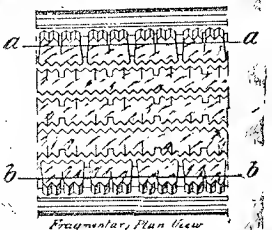 a a
b b
Fragmentary Plan View